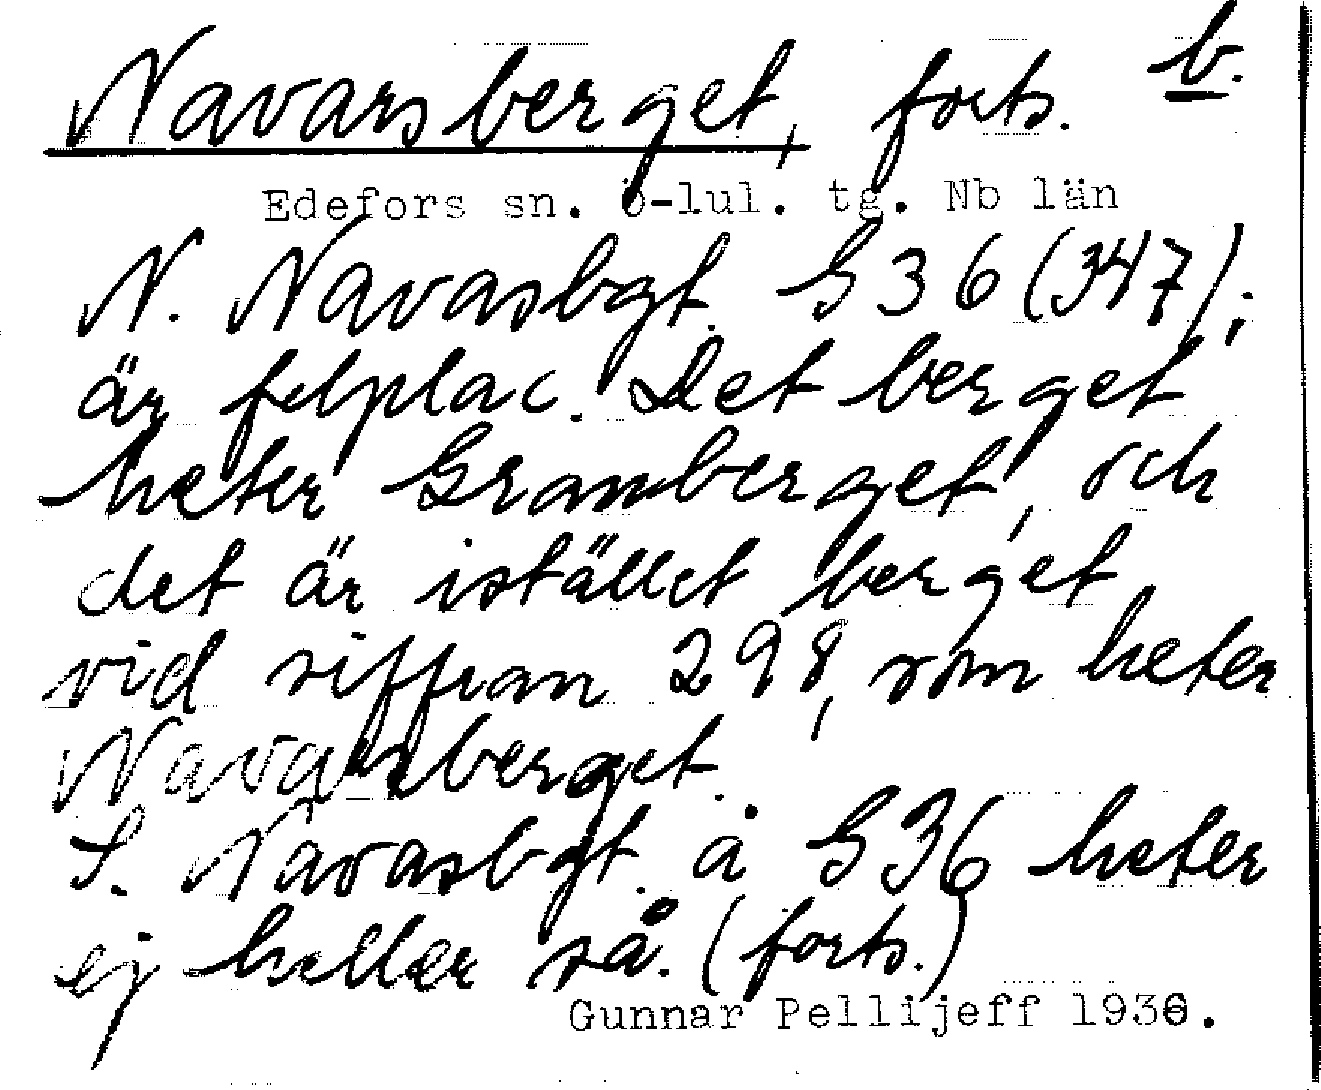 Navarsberget, forts. b.
Edefors sn. ö-lul. tg. Nb län
N. Navasbgt. G 36 (347);
är felplac. Det berget
heter Gramberget, och
det är istället berget
vid siffran 298, som heter
Navarsberget.
S. Navasbgt. å G36 heter
ej heller så. (forts.)
Gunnar Pellijeff 193